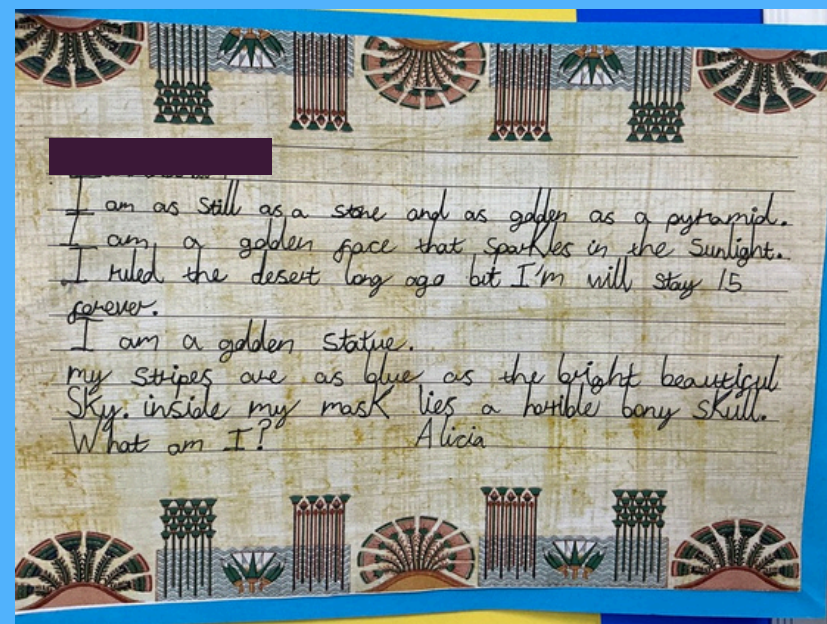 I am as still as a stone and as golden as a pyramid.
I am a golden face that sparkles in the sunlight.
I ruled the desert long ago but I'm will stay 15
forever.
I am a golden statue.
my stripes are as blue as the bright beautiful
Sky. inside my mask lies a horrible bony skull.
What am I? Alicia